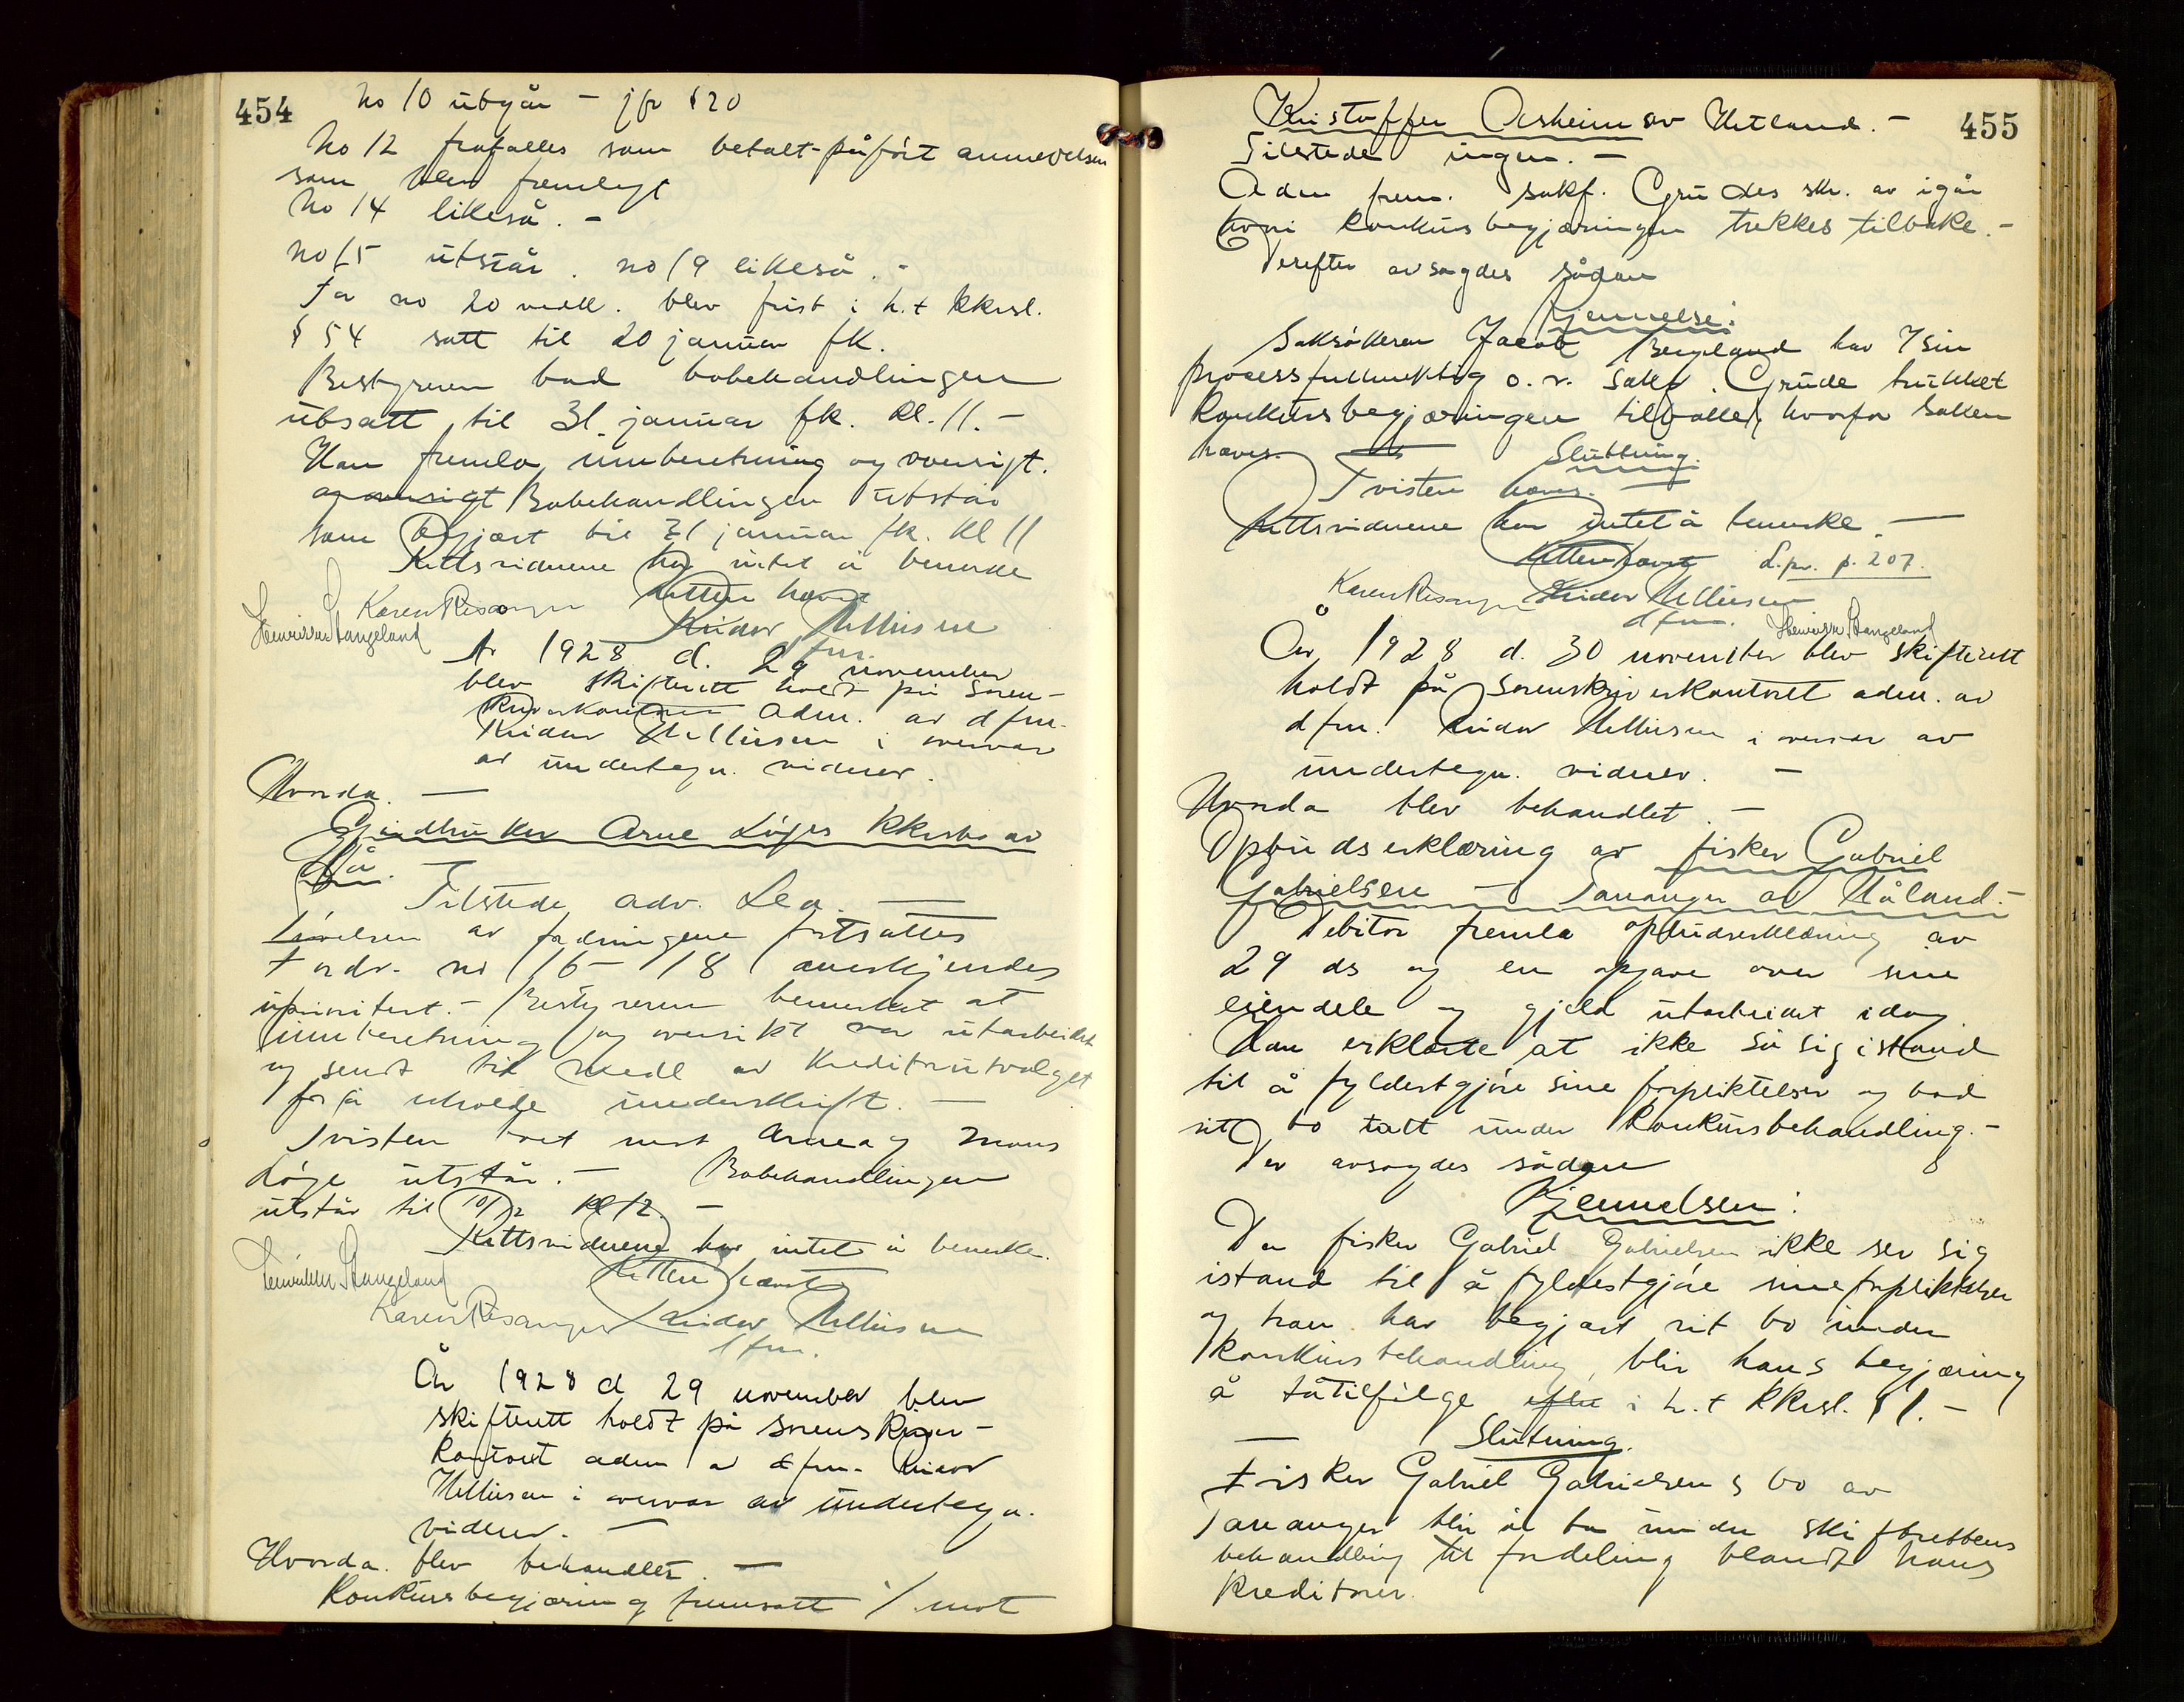 454
No 10 utgår – jfr § 20
No 12 frafalles som betalt – påført anmerkelsen
som blev fremlagt
No 14 likeså. –
no 15 utstår. no 19 likeså. –
For no 20 vedk. blev frist i h.t kkrsl.
§ 54 satt til 20 januar fk.
Bestyreren bad bobehandlingen
utsatt til 31. januar fk. kl. 11. –
Han fremla innberetning og oversigt.
og oversigt Bobehandlingen utstår
som begjært til 31 januar fk. kl 11
Rettsvidnene har intet å bemerke
Retten hævet
Karen Risanger
Reidar Mellusen
fm.
Henriksen Stangeland
År 1928 d. 29 november
blev skifterett holdt på soren-
skriverkontoret adm. av dfm.
Reidar Mellusen i overvær
av undertegn. vidner.
Hvorda. –
Gjindbruker Arne Liges kkrsbo av
Hå.
Tilstede adv. Lea. –
Prøvelsen av fordringene fortsattes
Fordr. no 16 – 18 anerkjendes
uprioritert. – Bestyreren bemerket at
innberetning og oversikt var utarbeidet
og sendt til medl av kreditorutvalget
for å erholde underskrift. –
Tvisten boet mot Arne og Mons
Lige utstår. – Bobehandlingen
utstår til 10/12 kl 12. –
Rettsvidnene har intet å bemerke.
Retten hævet
Henriksen Stangeland
Karen Risanger
Reidar Mellusen
dfm.
År 1928 d 29 november blev
skifterett holdt på sorenskriver-
kontoret adm av dfm. Reidar
Mellusen i overvær av undertegn.
vidner. –
Hvorda. blev behandlet. –
Konkursbegjæring fremsatt / mot
455
Kristoffer Aarsheim av Hetland. –
Tilstede ingen. –
Adm frem. sakf. Grudes skr. av igår
hvori konkursbegjæringen trekkes tilbake. –
Derefter avsagdes sådan
Kjennelse:
Saksøkeren Jacob Bergeland har v/ sin
processfullmektig o.r. sakf. Grude trukket
konkursbegjæringen tilbake, hvorfor saken
hæves.
Slutning.
Tvisten hæves. –
Rettsvidnene har intet å bemerke. –
Retten hævet
D.pr. p. 207.
Karen Risanger
Reidar Mellusen
dfm.
Henriksen Stangeland
År 1928 d. 30 november blev skifterett
holdt på sorenskriverkontoret adm. av
dfm. Reidar Mellusen i overvær av
undertegn. vidner. –
Hvorda blev behandlet. –
Opbudserklæring av fisker Gabriel
Gabrielsen – Tananger av Håland. –
Debitor fremla opbudserklæring av
29 ds og en opgave over sine
eiendele og gjeld utarbeidet idag
Han erklærte at ikke så sig istand
til å fyldestgjøre sine forpliktelser og bad
sit bo tatt under konkursbehandling. –
Der avsagdes sådan
Kjennelsen:
Da fisker Gabriel Gabrielsen ikke ser sig
istand til å fyldestgjøre sine forpliktelser
og han har begjært sit bo under
konkursbehandling, blir hans begjæring
å tatilfølge efter i h.t kkrsl. § 1. –
Slutning.
Fisker Gabriel Gabrielsens bo av
Tananger blir å ta under skifterettens
behandling til fordeling blandt hans
kreditorer.